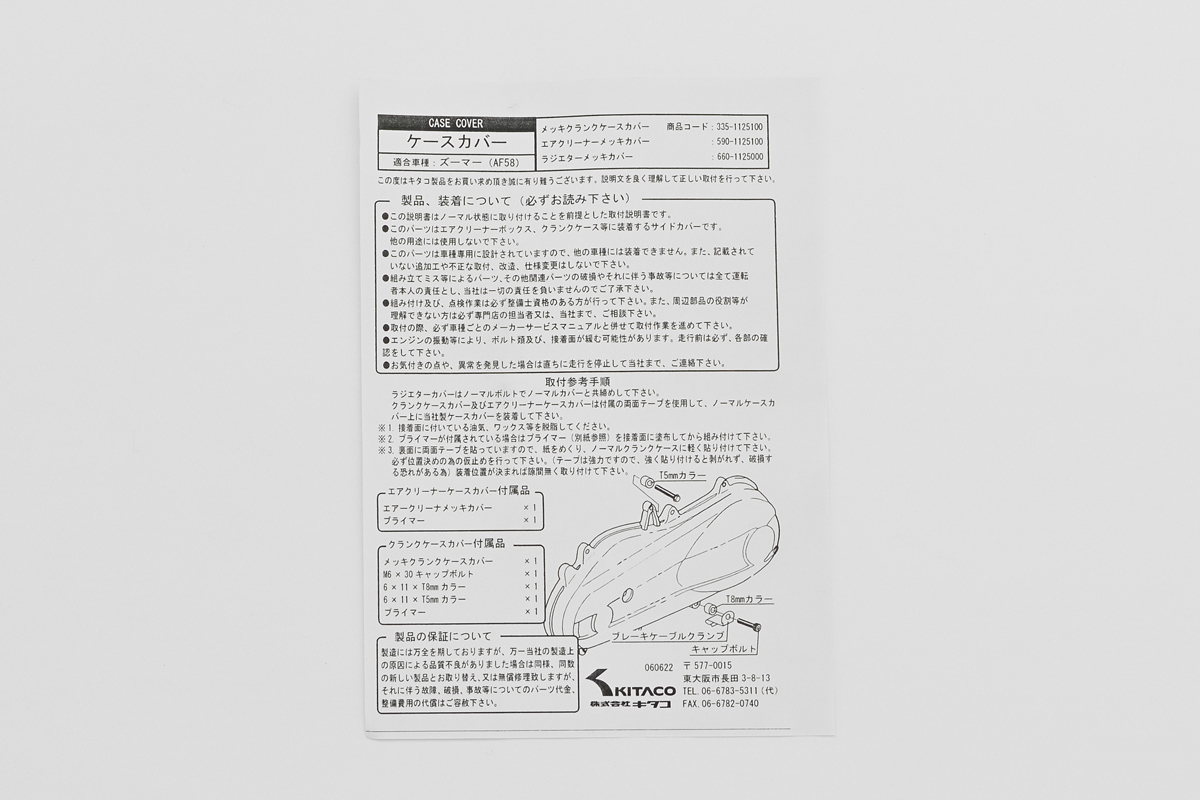 CASE COVER
ケースカバー
適合車種：ズーマー（AF58）
メッキクランクケースカバー　商品コード：335-1125100
エアクリーナーメッキカバー　：590-1125100
ラジエターメッキカバー　：660-1125000
この度はキタコ製品をお買い求め頂き誠に有り難うございます。説明文を良く理解して正しい取付を行って下さい。
製品、装着について（必ずお読み下さい）
●この説明書はノーマル状態に取り付けることを前提とした取付説明書です。
●このパーツはエアクリーナーボックス、クランクケース等に装着するサイドカバーです。
他の用途には使用しないで下さい。
●このパーツは車種専用に設計されていますので、他の車種には装着できません。また、記載されて
いない追加工や不正な取付、改造、仕様変更はしないで下さい。
●組み立てミス等によるパーツ、その他関連パーツの破損やそれに伴う事故等については全て運転
者本人の責任とし、当社は一切の責任を負いませんのでご了承下さい。
●組み付け及び、点検作業は必ず整備士資格のある方が行って下さい。また、周辺部品の役割等が
理解できない方は必ず専門店の担当者又は、当社まで、ご相談下さい。
●取付の際、必ず車種ごとのメーカーサービスマニュアルと併せて取付作業を進めて下さい。
●エンジンの振動等により、ボルト類及び、接着面が緩む可能性があります。走行前は必ず、各部の確
認をして下さい。
●お気付きの点や、異常を発見した場合は直ちに走行を停止して当社まで、ご連絡下さい。
取付参考手順
ラジエターカバーはノーマルボルトでノーマルカバーと共締めして下さい。
クランクケースカバー及びエアクリーナーケースカバーは付属の両面テープを使用して、ノーマルケースカ
バー上に当社製ケースカバーを装着して下さい。
※1. 接着面に付いている油気、ワックス等を脱脂してください。
※2. プライマーが付属されている場合はプライマー（別紙参照）を接着面に塗布してから組み付けて下さい。
※3. 裏面に両面テープを貼っていますので、紙をめくり、ノーマルクランクケースに軽く貼り付けて下さい。
必ず位置決めの為の仮止めを行って下さい。（テープは強力ですので、強く貼り付けると剥がれず、破損す
る恐れがある為）装着位置が決まれば隙間無く取り付けて下さい。
T5mmカラー
エアクリーナーケースカバー付属品
エアークリーナメッキカバー　×1
プライマー　×1
クランクケースカバー付属品
メッキクランクケースカバー　×1
M6×30キャップボルト　×1
6×11×T8mmカラー　×1
6×11×T5mmカラー　×1
プライマー　×1
T8mmカラー
ブレーキケーブルクランプ
キャップボルト
製品の保証について
製造には万全を期しておりますが、万一当社の製造上
の原因による品質不良がありました場合は同様、同数
の新しい製品とお取り替え、又は無償修理致しますが、
それに伴う故障、破損、事故等についてのパーツ代金、
整備費用の代償はご容赦下さい。
060622
KITACO
株式会社キタコ
〒577-0015
東大阪市長田3-8-13
TEL. 06-6783-5311（代）
FAX. 06-6782-0740